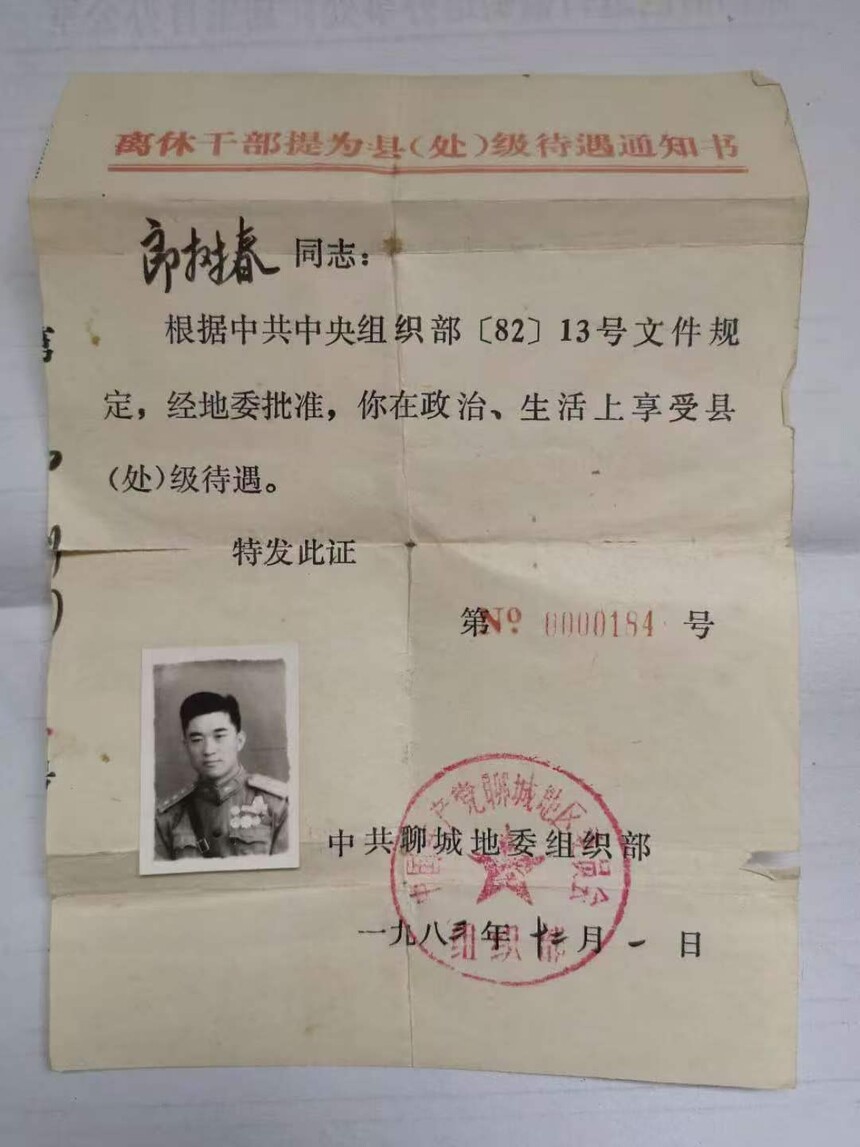 离休干部提为县(处)级待遇通知书
郎树春 同志：
根据中共中央组织部〔82〕13号文件规
定，经地委批准，你在政治、生活上享受县
(处)级待遇。
特发此证
第No 0000184 号
中共聊城地委组织部
一九八三年十二月一日
中国共产党聊城地区委员会
组织部